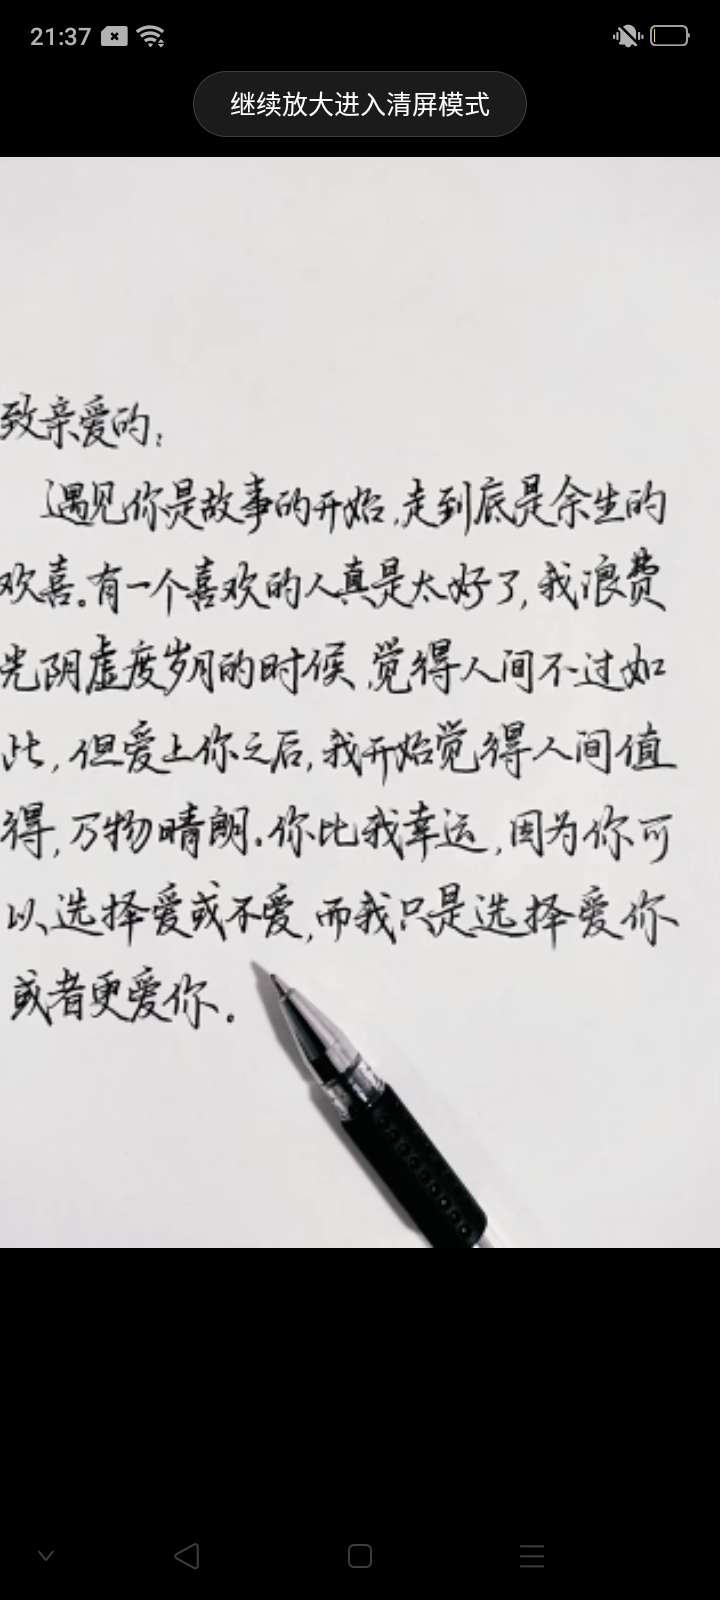 21:37
继续放大进入清屏模式
致亲爱的:
遇见你是故事的开始,走到底是余生的
欢喜。有一个喜欢的人真是太好了,我浪费
光阴虚度岁月的时候,觉得人间不过如
此,但爱上你之后,我开始觉得人间值
得,万物晴朗.你比我幸运,因为你可
以选择爱或不爱,而我只是选择爱你
或者更爱你.